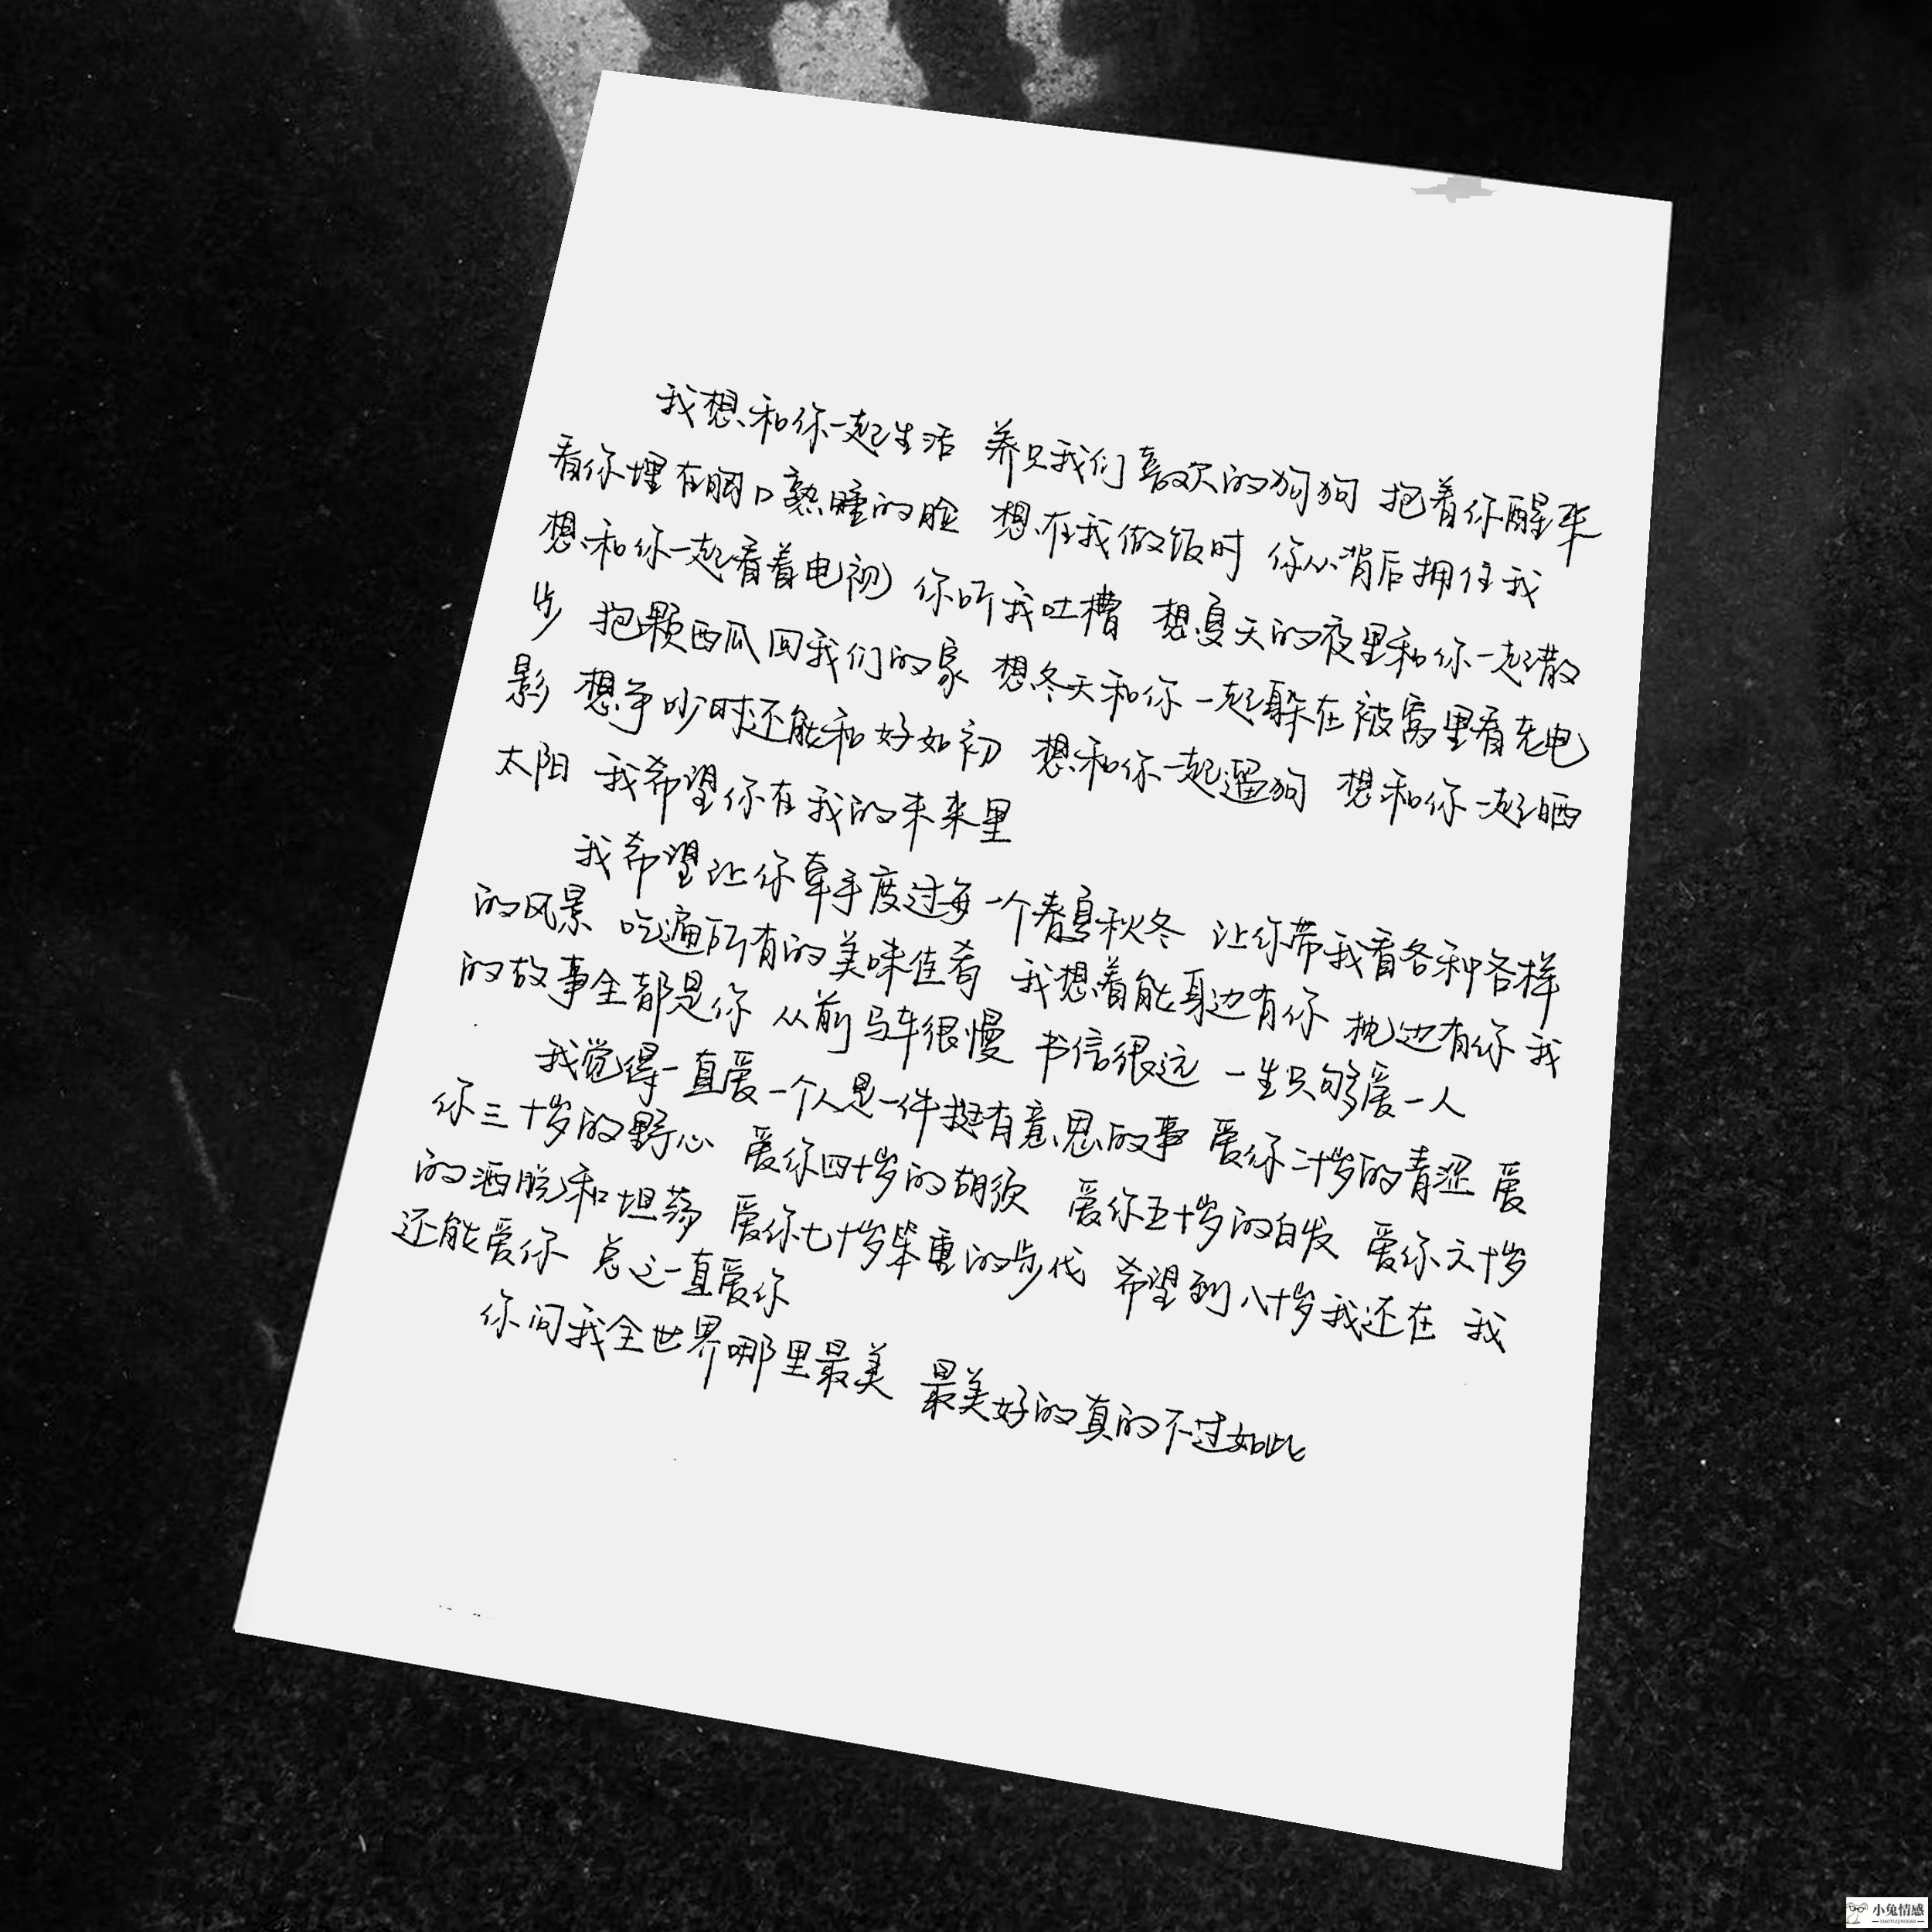 我想和你一起生活 养只我们喜欢的狗狗 抱着你醒来
看你埋在胸口熟睡的脸 想在我做饭时 你从背后拥住我
想和你一起看着电视 你听我吐槽 想夏天的夜里和你一起散
步 抱颗西瓜回我们的家 想冬天和你一起躲在被窝里看充电
影 想争吵时还能和好如初 想和你一起遛狗 想和你一起晒
太阳 我希望你在我的未来里
我希望让你牵手度过每一个春夏秋冬 让你带我看各种各样
的风景 吃遍所有的美味佳肴 我想着能身边有你 枕边有你 我
的故事全都是你 从前马车很慢 书信很远 一生只够爱一人
我觉得一直爱一个人是一件挺有意思的事 爱你二十岁的青涩 爱
你三十岁的野心 爱你四十岁的胡须 爱你五十岁的白发 爱你六十岁
的洒脱和坦荡 爱你七十岁笨重的步伐 希望到八十岁我还在 我
还能爱你 总之一直爱你
你问我全世界哪里最美 最美好的真的不过如此
小兔情感
XIAOTUQINGGAN